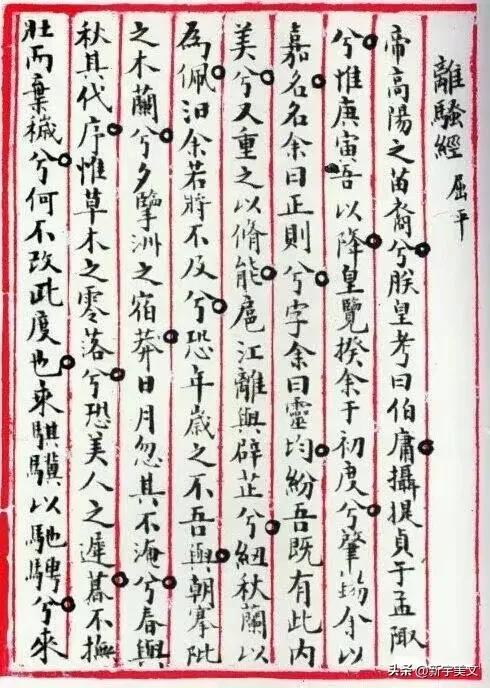 離騷經 屈平
帝高陽之苗裔兮朕皇考曰伯庸攝提貞于孟陬
兮惟庚寅吾以降皇覽揆余于初度兮肇錫余以
嘉名名余曰正則兮字余曰靈均紛吾既有此内
美兮又重之以脩能扈江離與辟芷兮紉秋蘭以
為佩汨余若將不及兮恐年歲之不吾與朝搴阰
之木蘭兮夕擥洲之宿莽日月忽其不淹兮春與
秋其代序惟草木之零落兮恐美人之遲暮不撫
壯而棄穢兮何不改此度也乘騏驥以馳騁兮來
头条 @新宇美文